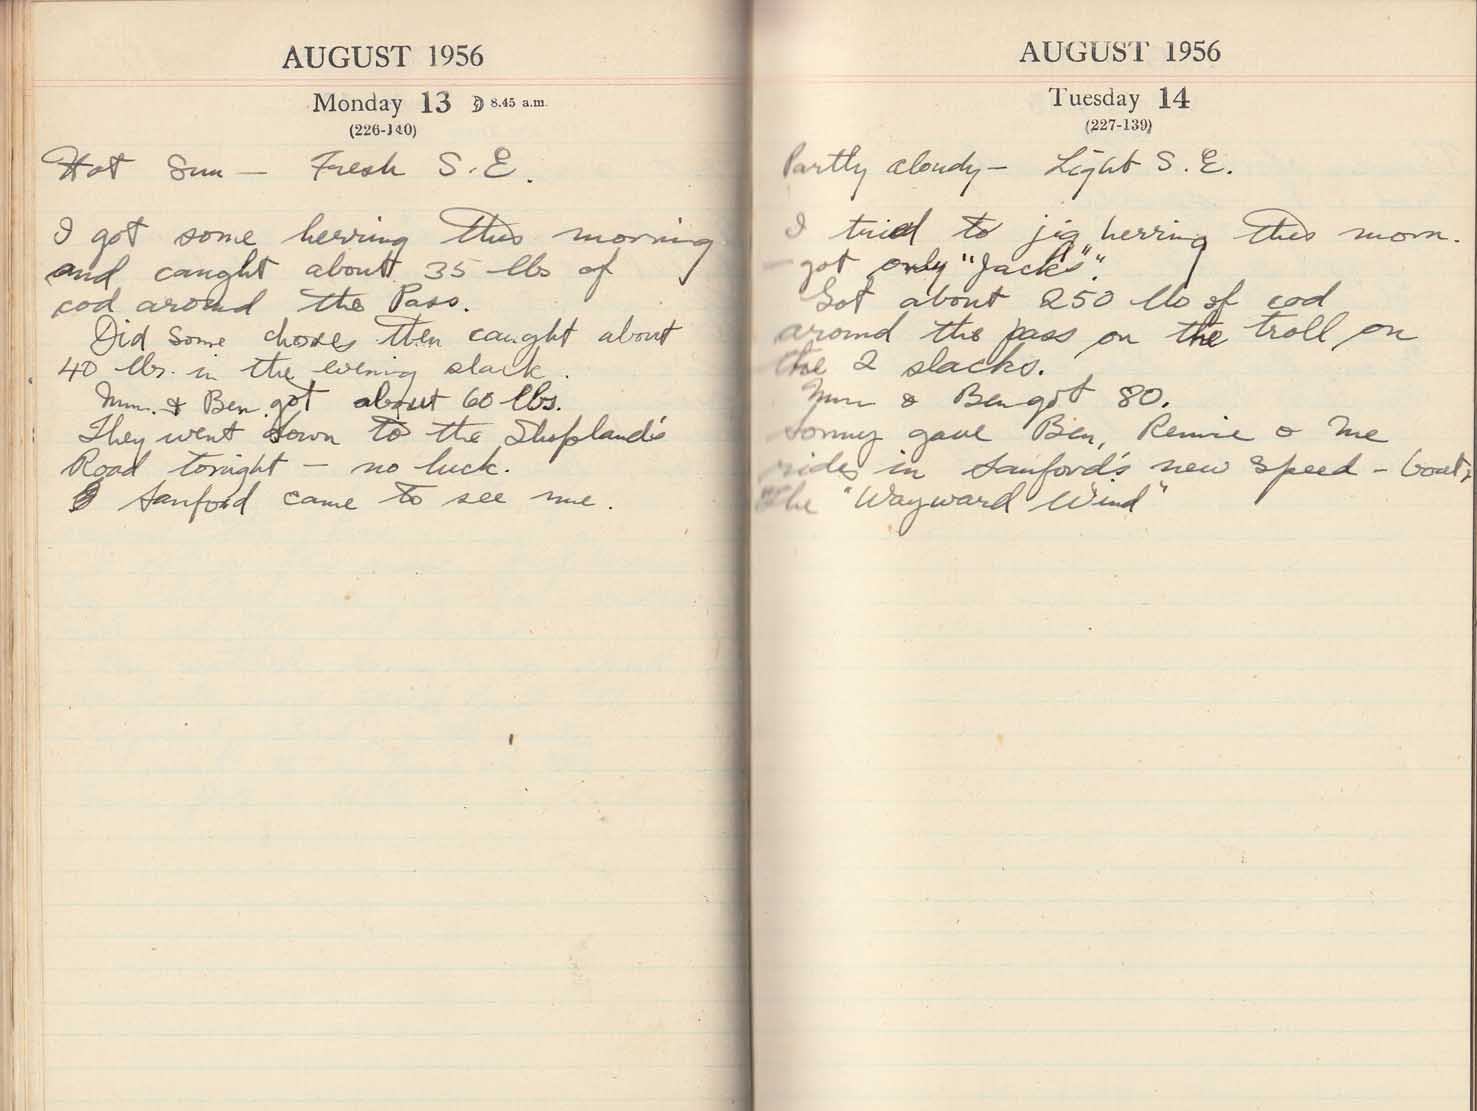 AUGUST 1956
Monday 13 8.45 a.m.
(226-140)
Hot Sun — Fresh S.E.
I got some herring this morning
and caught about 35 lbs of
cod around the Pass.
Did some chores then caught about
40 lbs. in the evening slack.
Mum. & Ben got about 60 lbs.
They went down to the Shopland's
Road tonight — no luck.
Sanford came to see me.
AUGUST 1956
Tuesday 14
(227-139)
Partly cloudy — Light S.E.
I tried to jig herring this morn.
— got only "Jacks".
Got about 250 lbs of cod
around the pass on the troll on
the 2 slacks.
Mum & Ben got 80.
Sonny gave Ben, & me
rides in Sanford's new speed-boat,
The "Wayward Wind"